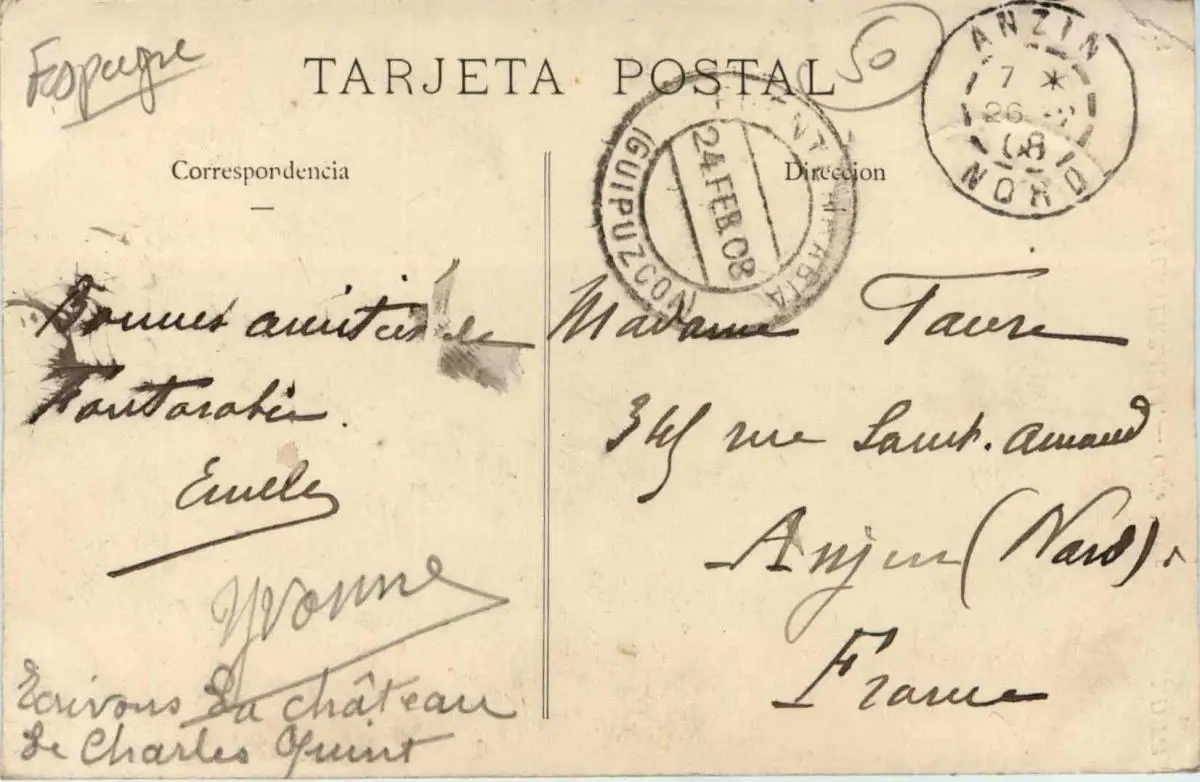 Espagne
TARJETA POSTAL
50
ANZIN
7 *
26
08
NORD
FUENTERRABIA
24 FEB 08
(GUIPUZCOA)
Correspondencia
Direccion
Bonnes amitiés de
Fontarabie.
Emile
Yvonne
Ecrivons Du château
De Charles Quint
Madame Faure
345 rue Saint. Amand
Anzin (Nord).
France